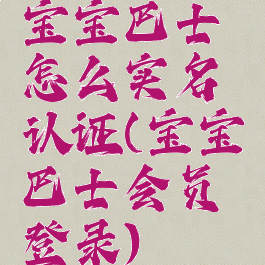 宝宝巴士
怎么实名
认证(宝宝
巴士会员
登录)